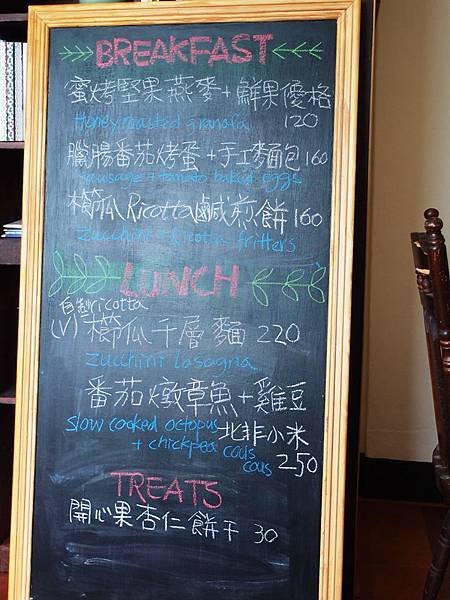 BREAKFAST
蜜烤堅果燕麥+鮮果優格
Honey roasted granola 120
臘腸番茄烤蛋+手工麵包160
sausage + tomato baked eggs
櫛瓜Ricotta鹹煎餅160
zucchini + ricotta fritters
LUNCH
自製ricotta
(V) 櫛瓜千層麵 220
zucchini lasagna
番茄燉章魚+雞豆
slow cooked octopus 北非小米
+ chickpea cous
cous 250
TREATS
開心果杏仁餅干 30